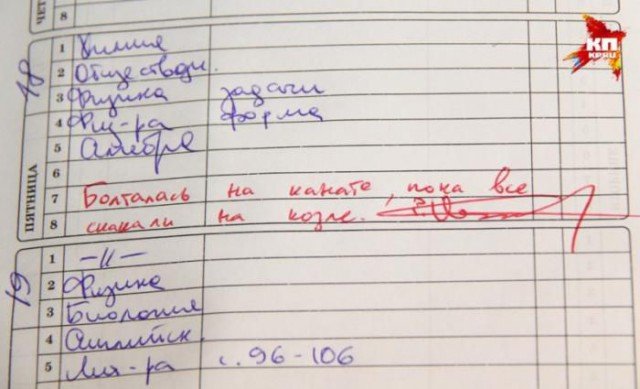 8
КП
KP.RU
18
ПЯТНИЦА
1 Химия
2 Обществозн.
3 Физика задачи
4 Физ-ра форма
5 Алгебра
6
7 Болталась на канате, пока все
8 скакали на козле.
19
1 -||-
2 Физика
3 Биология
4 Английск.
5 Лит-ра с. 96-106